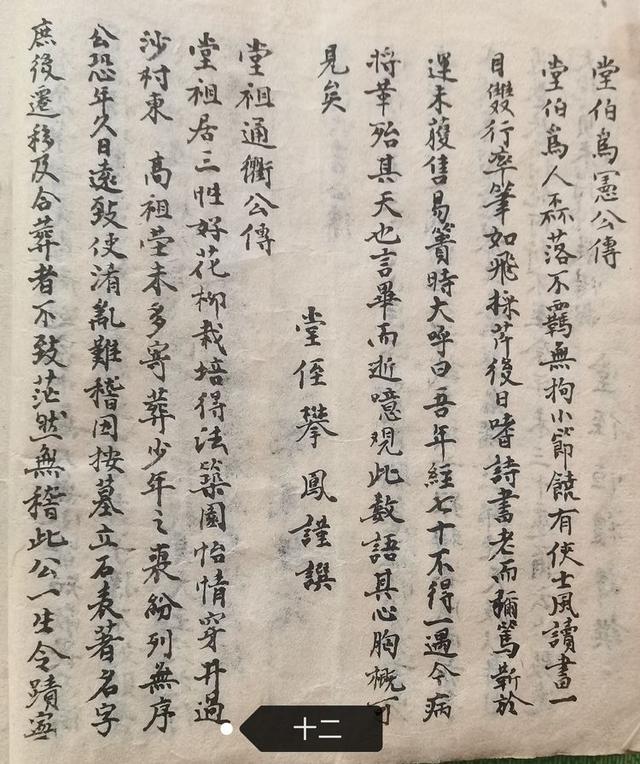 堂伯為憲公傳
堂伯為人磊落不羈無拘小節饒有俠士風讀書一
目雙行率筆如飛採芹後日嗜詩書老而彌篤靳於
運未獲售易簀時大呼曰吾年經七十不得一遇今病
將革殆其天也言畢而逝噫觀此數語其心胸概可
見矣
堂侄攀鳳謹譔
堂祖通衢公傳
堂祖居三性好花柳栽培得法築園怡情穿井過
沙村東 高祖塋未多寄葬少年之喪紛列無序
公恐年久日遠致使淆亂難稽因按墓立石表著名字
庶後遷移及合葬者不致茫然無稽此公一生令蹟寔
十二